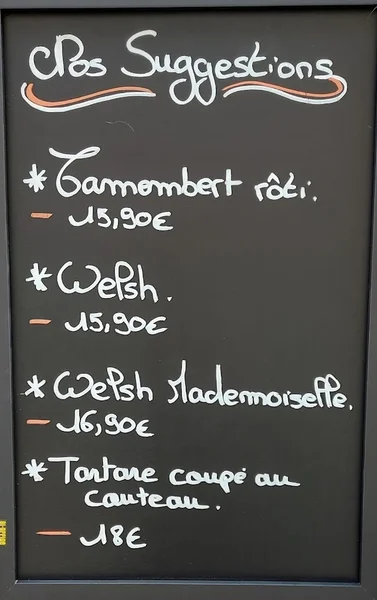 Nos Suggestions
* Camembert rôti.
- 15,90€
* Welsh.
- 15,90€
* Welsh Mademoiselle.
- 16,90€
* Tartare coupé au
couteau.
- 18€